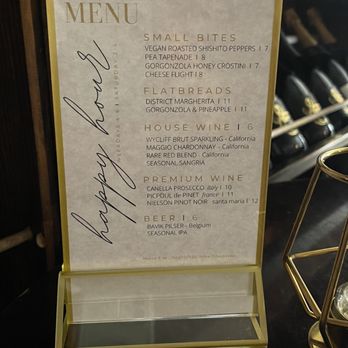 MENU
happy hour
SMALL BITES
VEGAN ROASTED SHISHITO PEPPERS I 7
PEA TAPENADE I 8
GORGONZOLA HONEY CROSTINI I 7
CHEESE FLIGHT I 8
FLATBREADS
DISTRICT MARGHERITA I 11
GORGONZOLA & PINEAPPLE I 11
HOUSE WINE I 6
WYCLIFF BRUT SPARKLING - California
MAGGIO CHARDONNAY - California
RARE RED BLEND - California
SEASONAL SANGRIA
PREMIUM WINE
CANELLA PROSECCO italy I 10
PICPOUL de PINET france I 11
NIELSON PINOT NOIR - santa maria I 12
BEER I 6
BAVIK PILSER - Belgium
SEASONAL IPA